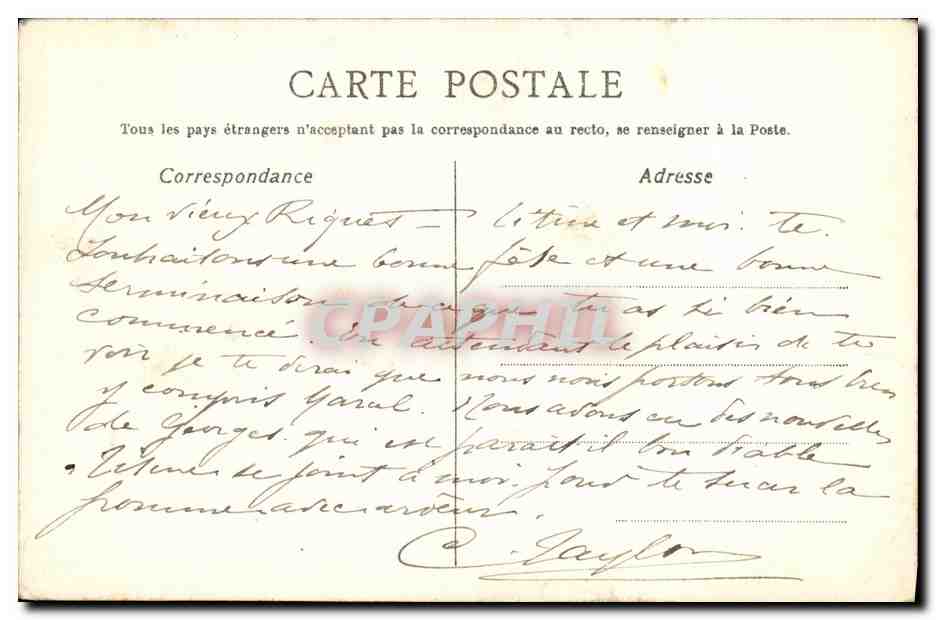 CARTE POSTALE
Tous les pays étrangers n'acceptant pas la correspondance au recto, se renseigner à la Poste.
Correspondance
Adresse
Mon vieux Riquès — Titine et moi te
souhaitons une bonne fête et une bonne
terminaison de ce que tu as si bien
commencé. En attendant le plaisir de te
voir je te dirai que nous nous portons tous bien
y compris . Nous avons eu des nouvelles
de Georges qui est parait il bon diable
Titine se joint à moi pour te sucer la
pomme avec ardeur.
C. Taylor
CPAPHIL